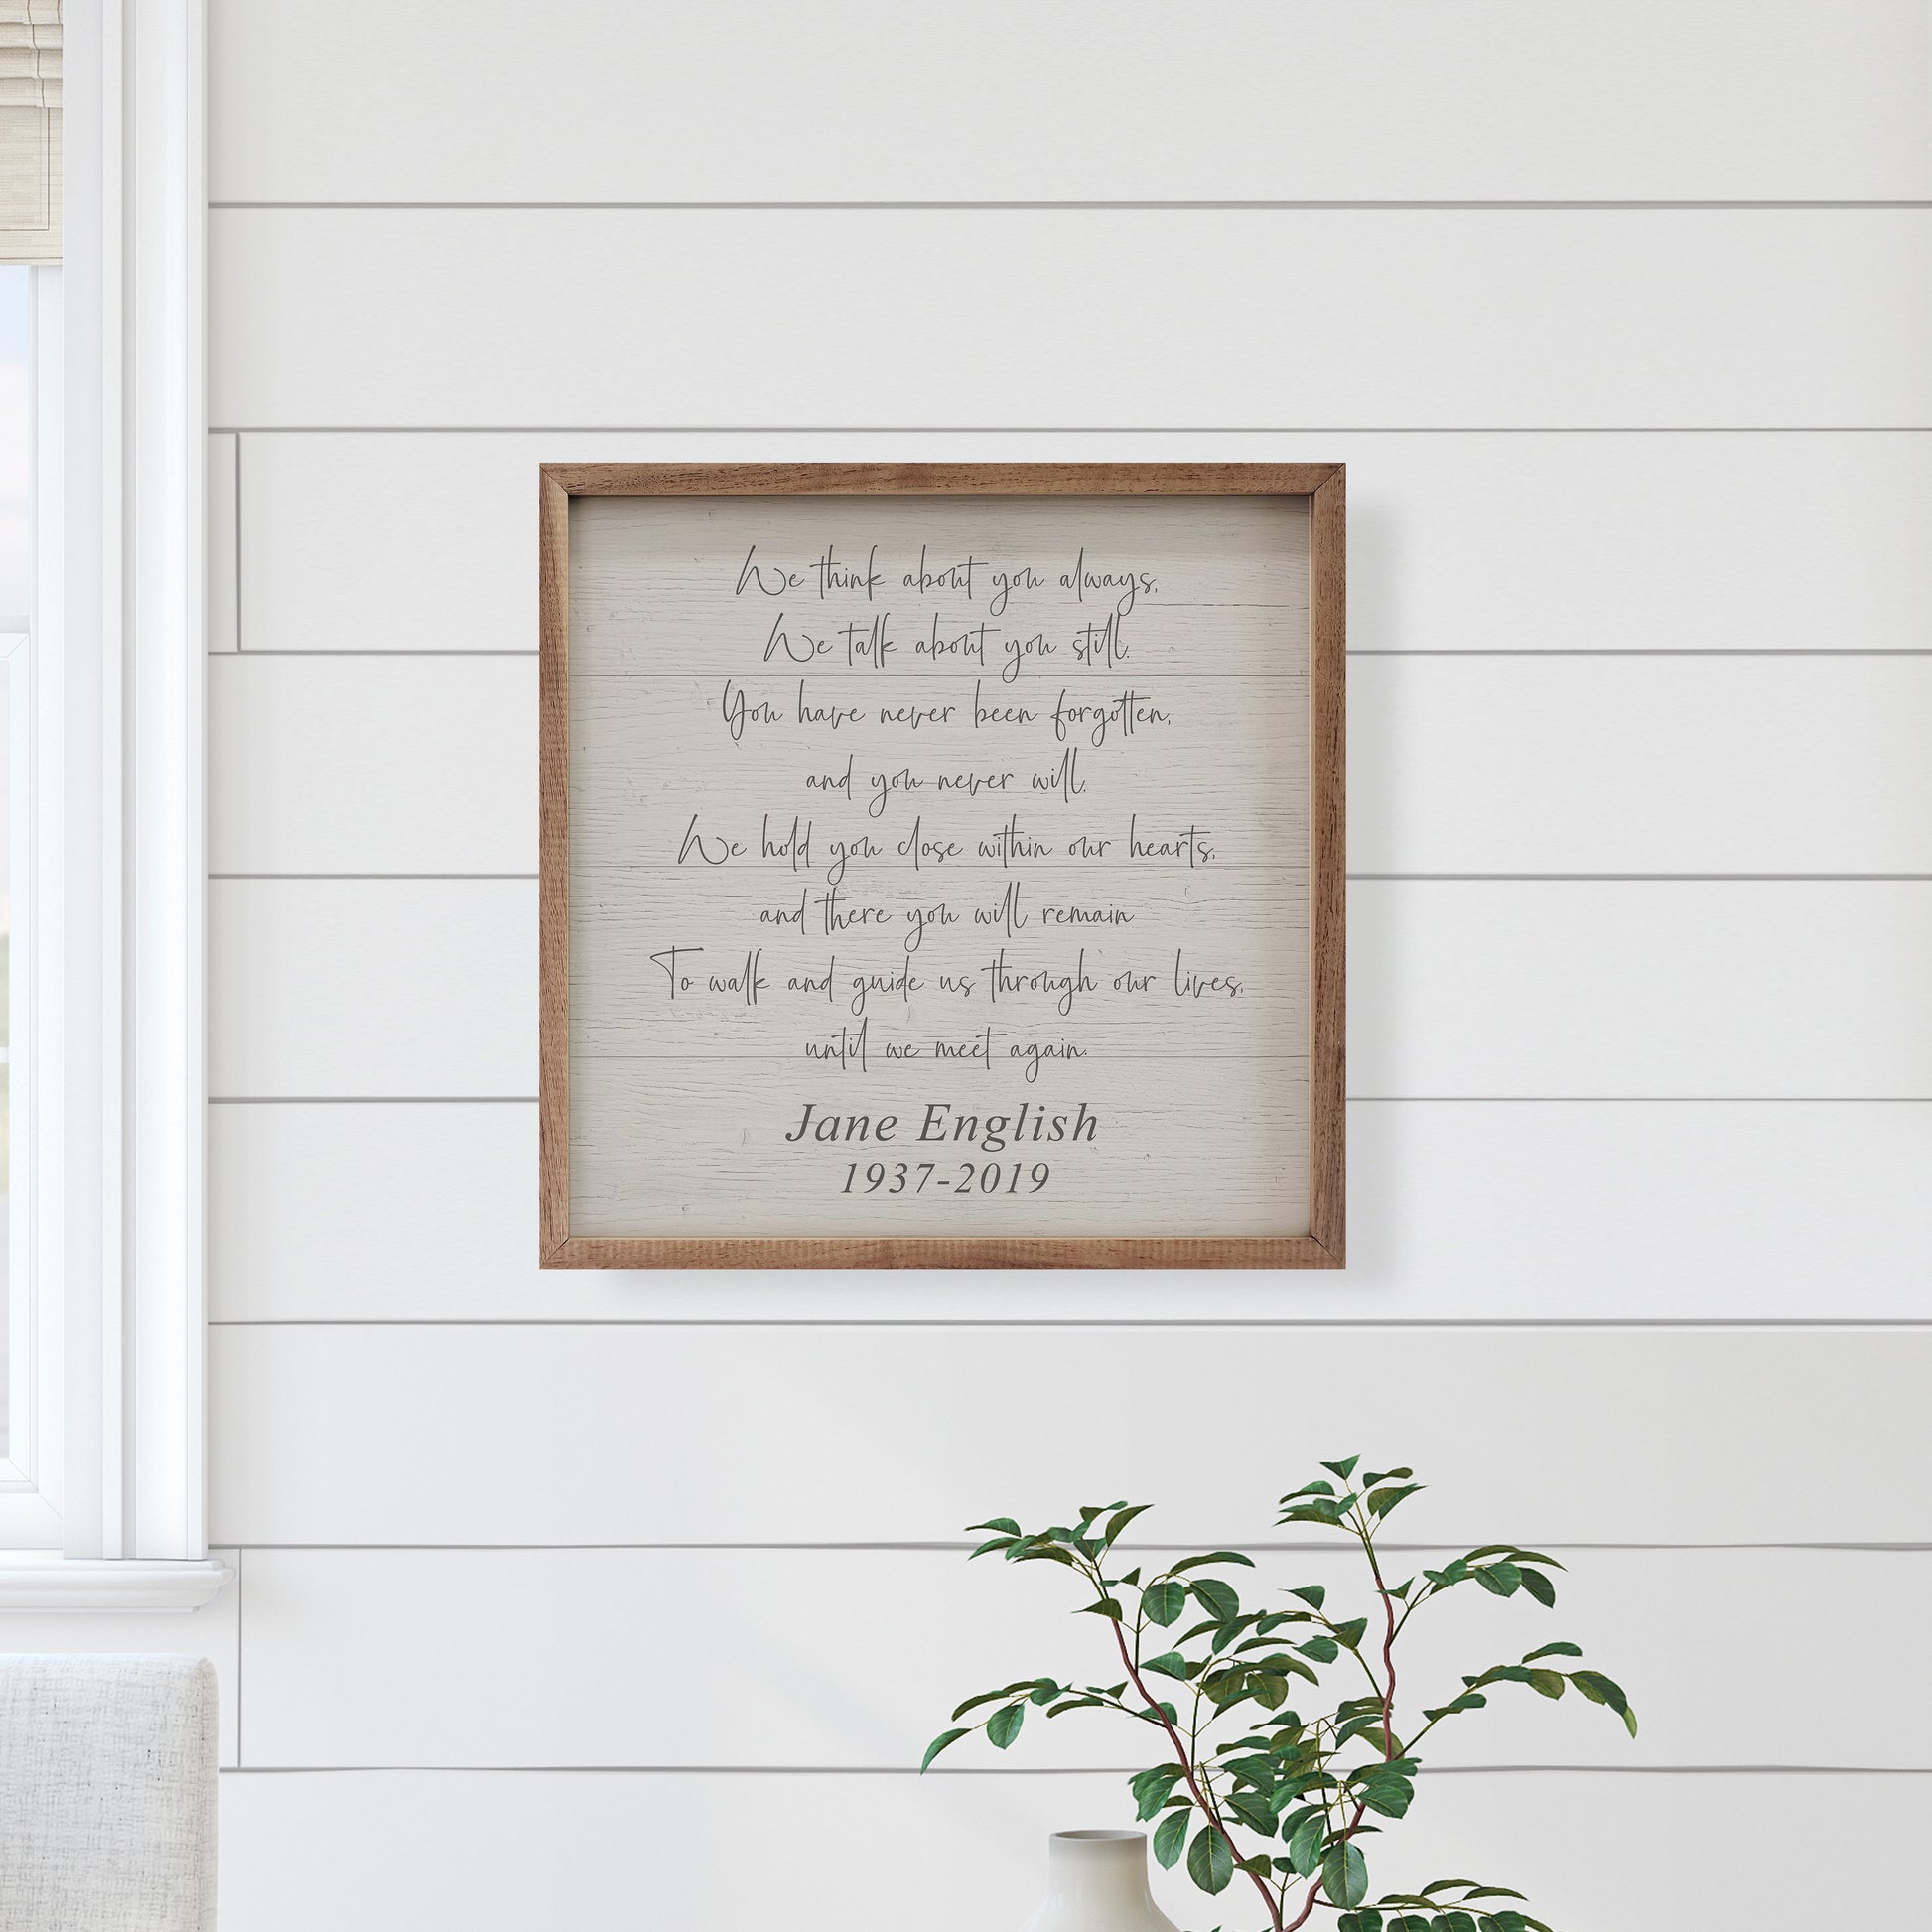 We think about you always,
We talk about you still.
You have never been forgotten,
and you never will.
We hold you close within our hearts,
and there you will remain
To walk and guide us through our lives,
until we meet again.
Jane English
1937-2019